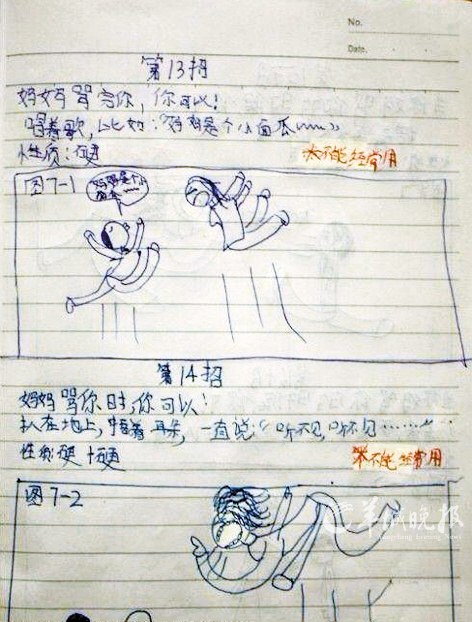 No.
Date.
第13招
妈妈骂完你，你可以！
唱着歌，比如：“妈妈是个小面瓜~~~”
性质：硬
*不能经常用
图7-1
妈妈是个小
面瓜~~~
第14招
妈妈骂你时，你可以！
趴在地上，捂着耳朵，一直说“听不见，听不见……”
性质：硬+硬
*不能经常用
图7-2
羊城晚报